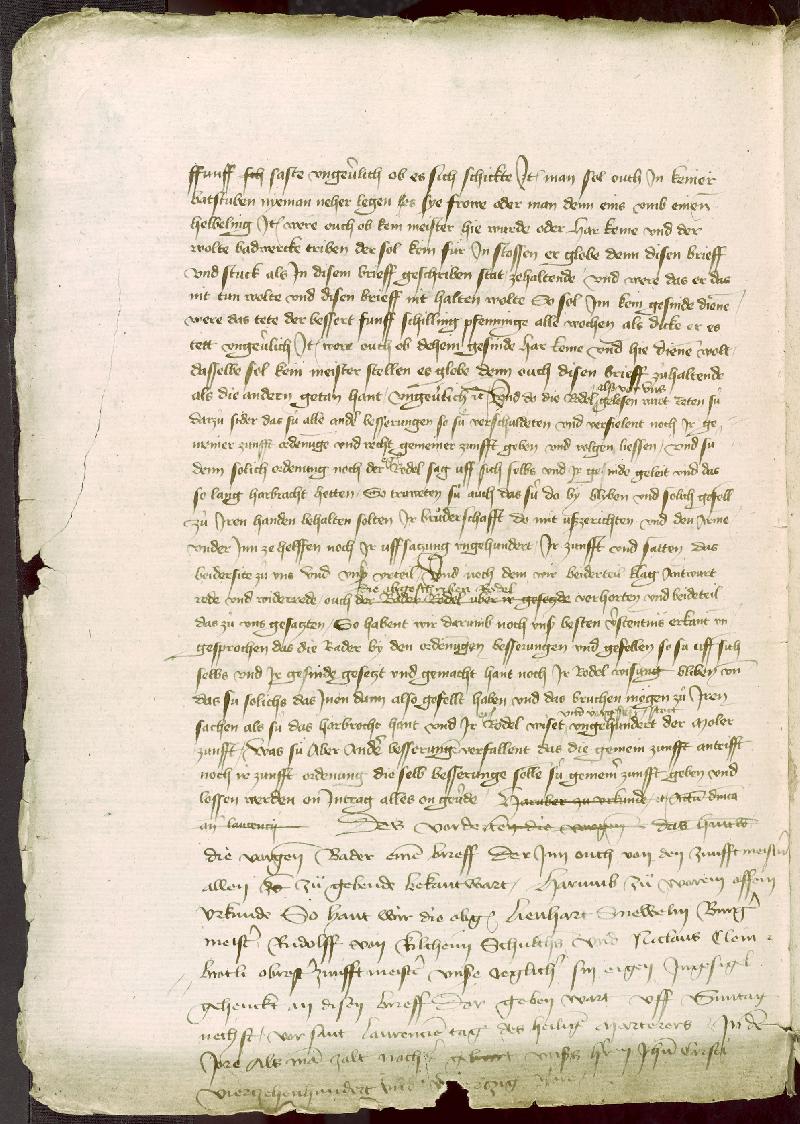 ffunff sch faste ungeůlich ob es sich schickte It man sol ouch In keiner
batstuben nieman neher legen es sye frowe oder man denn eins umb einen
helbeling It were ouch ob kein meister hie wurde oder har keme und der
wolte badwercke triben der sol kein für In stossen er globe denn disen brieff
und stuck als In disem brieff geschriben stat zehaltende und were das er das
nit tun wolte und disen brieff nit halten wolte So sol Im kein gesinde diene
were das tete der bessert funff schilling pfenninge alle wochen als dicke er es
tett ungeůlich It were ouch ob dehein gesinde har keme und hie diene wolt
dasselbe sol kein meister stellen es globe denn ouch disen brieff zuhaltende
als die andern getan hant ungeůlich etc Und do die Rodel also vor uns gelesen wart Reten sü
darzu sider das sü alle ander besserungen so sü verschuldeten und verfielent noch Ir ge
meiner zunfft ordenunge und recht gemeiner zunfft geben und volgen liessen und sü
denn solich ordenung noch der Rodel sag uff sich selbs und Ir gesinde geleit und das
so lang harbracht hetten So truweten sü auch das sü do by bliben und solich gefell
zü Iren handen behalten solten Ir brüderschafft do mit ufzerichten und den Irme
under Inn ze helffen noch Ir uffsatzung ungehindert Ir zunfft und satten das
beidersite zü uns und unser urteil Und noch dem wir beiderteil klag Antwurt
rede und widerrede ouch die abgeschriben Rodel der Bader Rodel über ir gesetzde verhorten und beideteil
das zü uns gesatzten So habent wir darumb noch unser besten verstentnis erkant un
gesprochen das die Bader by den ordenungen besserungen und gefellen so sü uff sich
selbs und Ir gesinde gesetzt und gemacht hant noch Ir Rodel wisung bliben un
das sü solichs das Inen dann also gefellt haben und das bruchen mögen zü Iren
sachen als sü das harbrocht hant und Ir Rodel wiset und ungehindert der Moler
zunfft Was sü Aber Ander besserunge verfallent das die gemein zunfft antrifft
noch ir zunfft ordenung die selb besserunge solle sü gemeiner zunfft geben und
lossen werden on Intrag alles on geverde Harüber zu urkunde etc Actum dominica
ante laurencij Des vorderten die das hantw
die vorgen Bader einen brieff Der Inn ouch von den zunfftmeistern
allen zü gebende bekant wart Harumb zü worem offem
Urkunde So hant wir die obgen Lienhart Snewelin Burger
meister Rudolff von Kilcheim Schulths und Niclaus Clem
brotli obrester zunfftmeister unser yeglicher sin eigen Ingesigel
gehenckt an disen brieff Der geben wart uff Suntag
nechst vor sant Laurencien tag des heiligen marterers In dem
Jore Als man zalt noch der geburt unsers herren Jhesu Cristi
viertzehenhundert und Jore